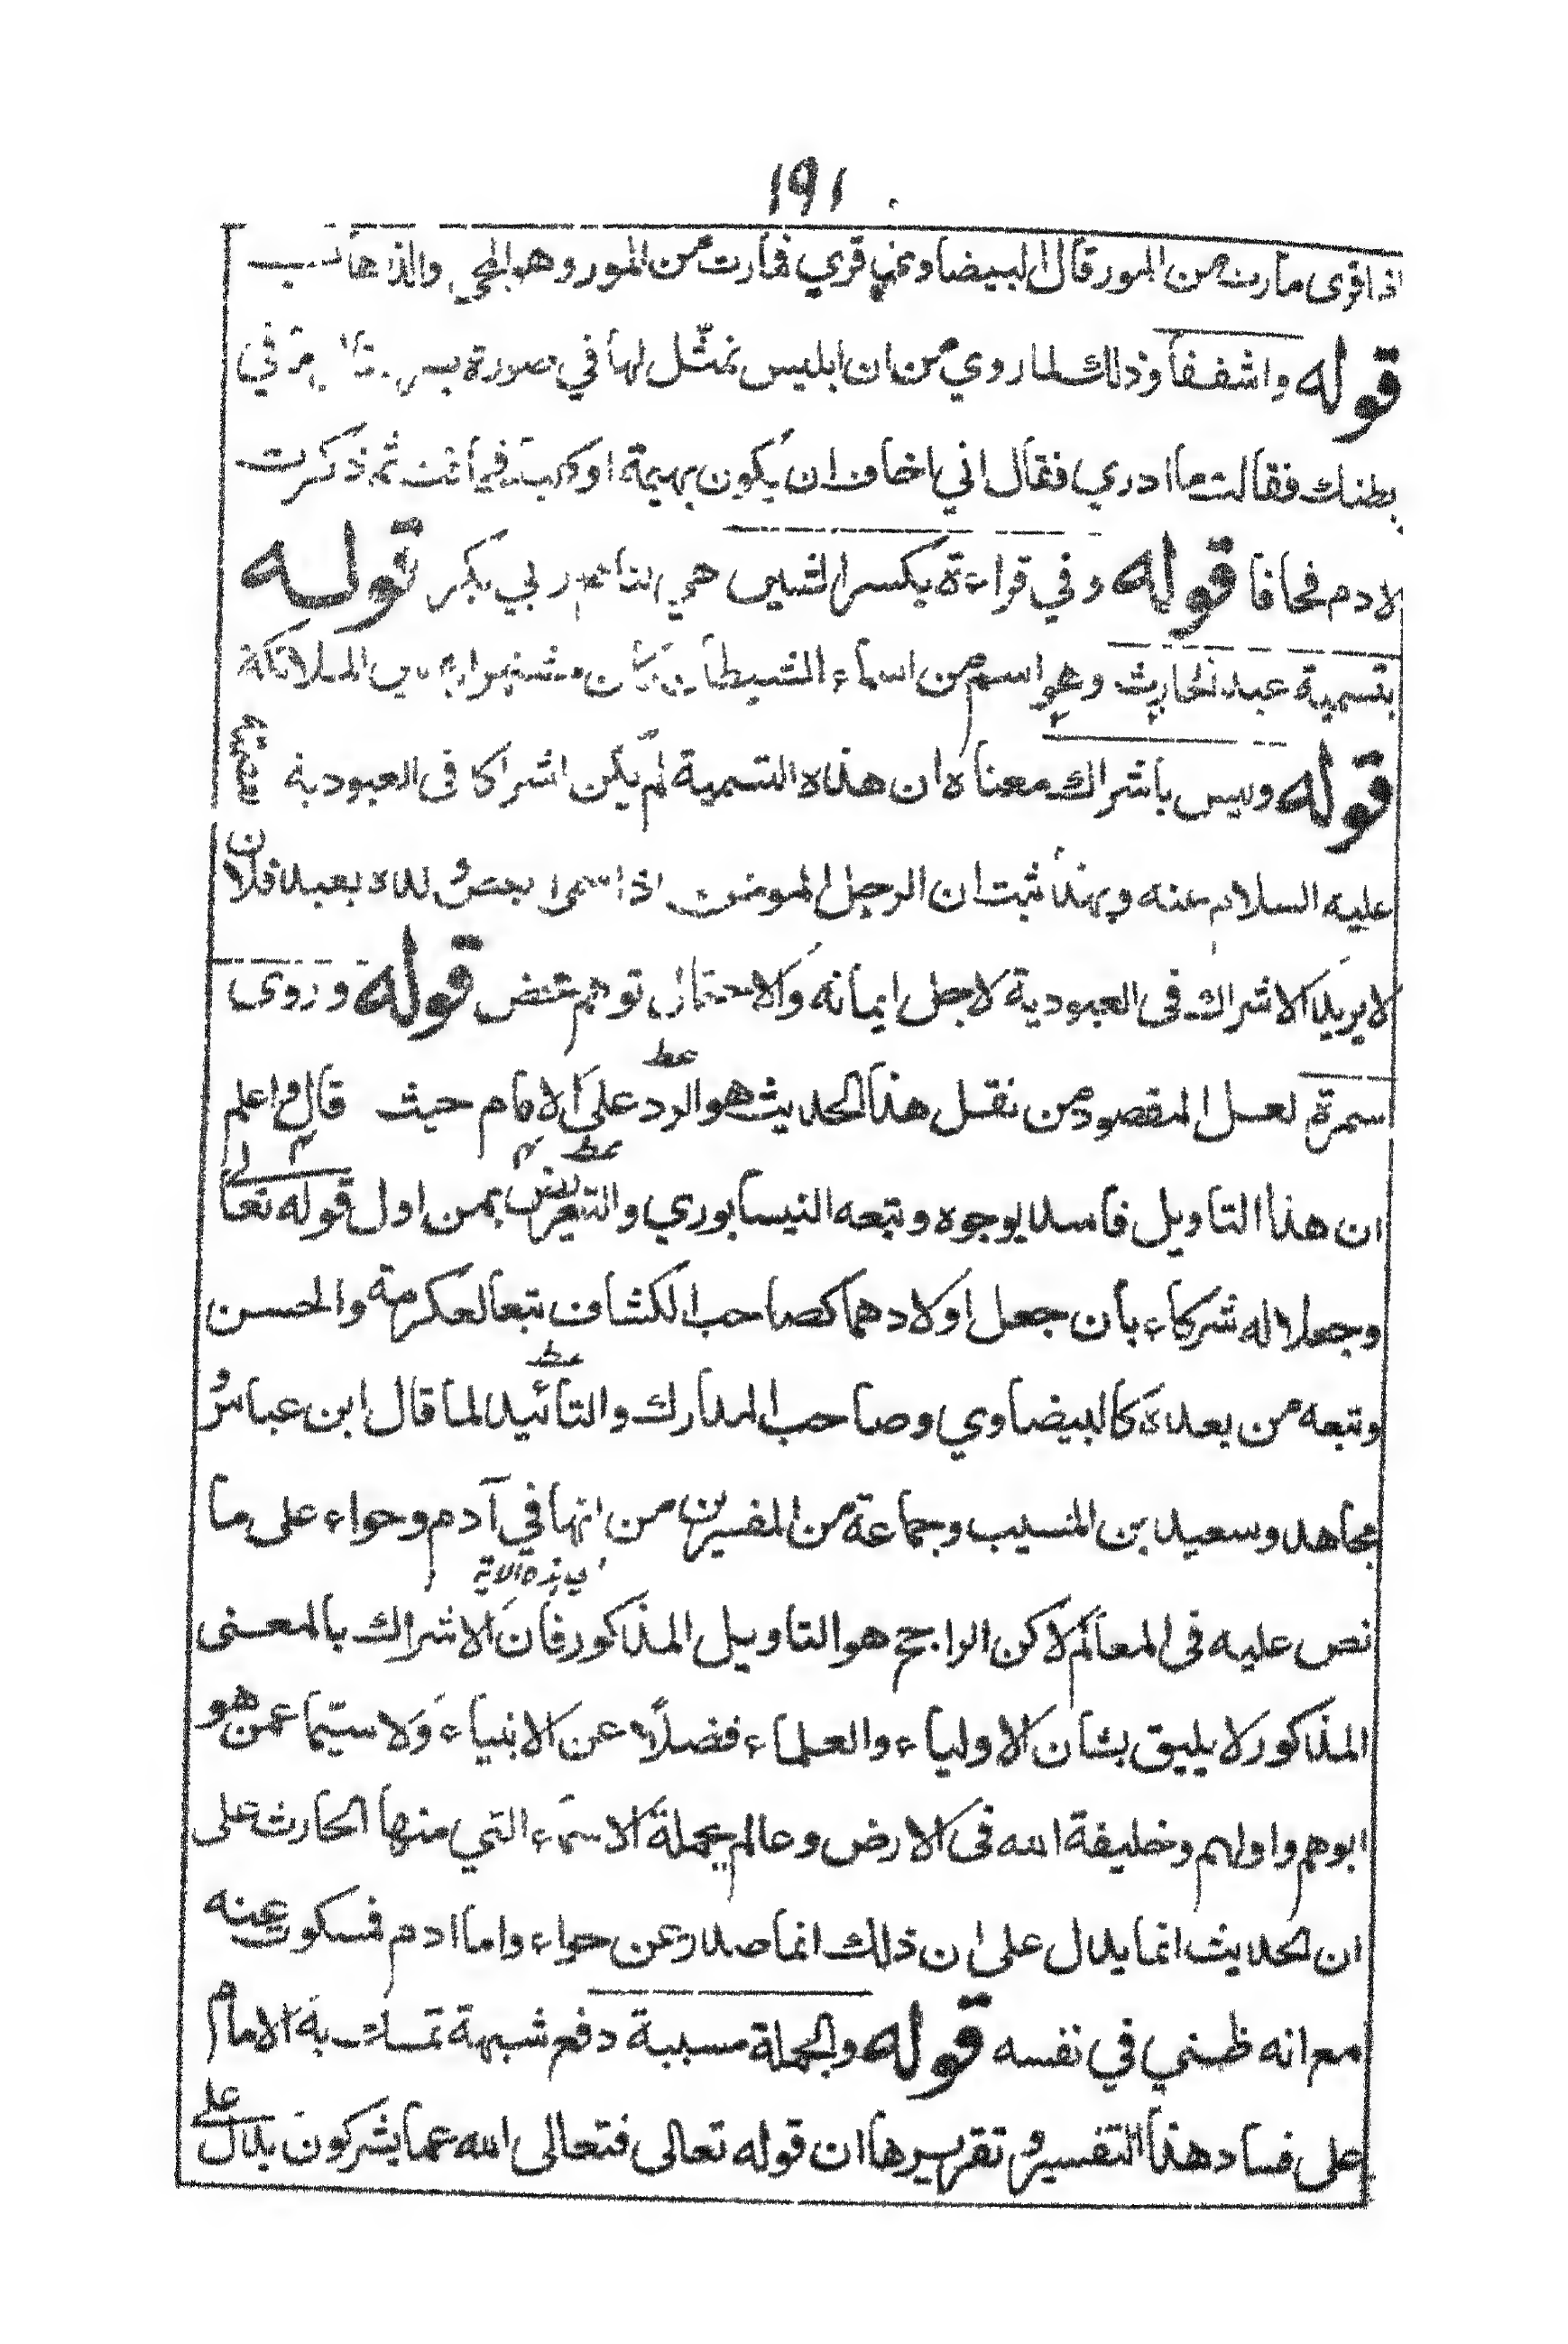 ١٩١
اذا قرى مارت من المور قال البيضاوي قري فمارت من المور وهو المجي والذهاب
قوله واشفقا وذلك لما روي من ان ابليس تمثل لها في صورة في
بطنك فقالت ما ادري فقال اني اخاف ان يكون بهيمة او كلب ثم ذكرت
لادم فخافا قوله وفي قراءة بكسر الشين بي بكر قوله
بتسمية عبد الحارث وهو اسم من اسماء الشيطان الملائكة
قوله وليس باشراك معناه ان هذه التسمية لم يكن اشراكا فى العبودية
عليه السلام عنه وبهذا ثبت ان الرجل المومن اذا سمى بعض ولده بعبد فلان
لا يريد الاشراك فى العبودية لاجل ايمانه والاحتمال توهم محض قوله وروى
سمرة لعل المقصود من نقل هذا الحديث هو الرد على الامام حيث قال واعلم
ان هذا التاويل فاسد بوجوه وتبعه النيسابوري والتعريض بمن اول قوله تعالى
وجعلا له شركاء بأن جعل اولادهما كصاحب الكشاف تبعا لعكرمة والحسن
وتبعه من بعده كالبيضاوي وصاحب المدارك والتائيد لما قال ابن عباس و
مجاهد وسعيد بن المسيب وجماعة من المفسرين من انها في آدم وحواء على ما
نص عليه فى المعالم لاكن الراجح هو التاويل المذكور فان الاشراك بالمعنى
المذكور لا يليق بشان الاولياء والعلماء فضلًا عن الانبياء ولا سيّما عمن هو
ابوهم واولهم وخليفة الله فى الارض وعالم بجملة الاسماء التي منها الحارث على
ان الحديث انما يدل على ان ذلك انما صدر عن حواء واما ادم فمسكوت عنه
مع انه ظني في نفسه قوله والجملة مسببة دفع شبهة تمسك به الامام
على فساد هذا التفسير وتقريرها ان قوله تعالى فتعالى الله عما يشركون يدل على